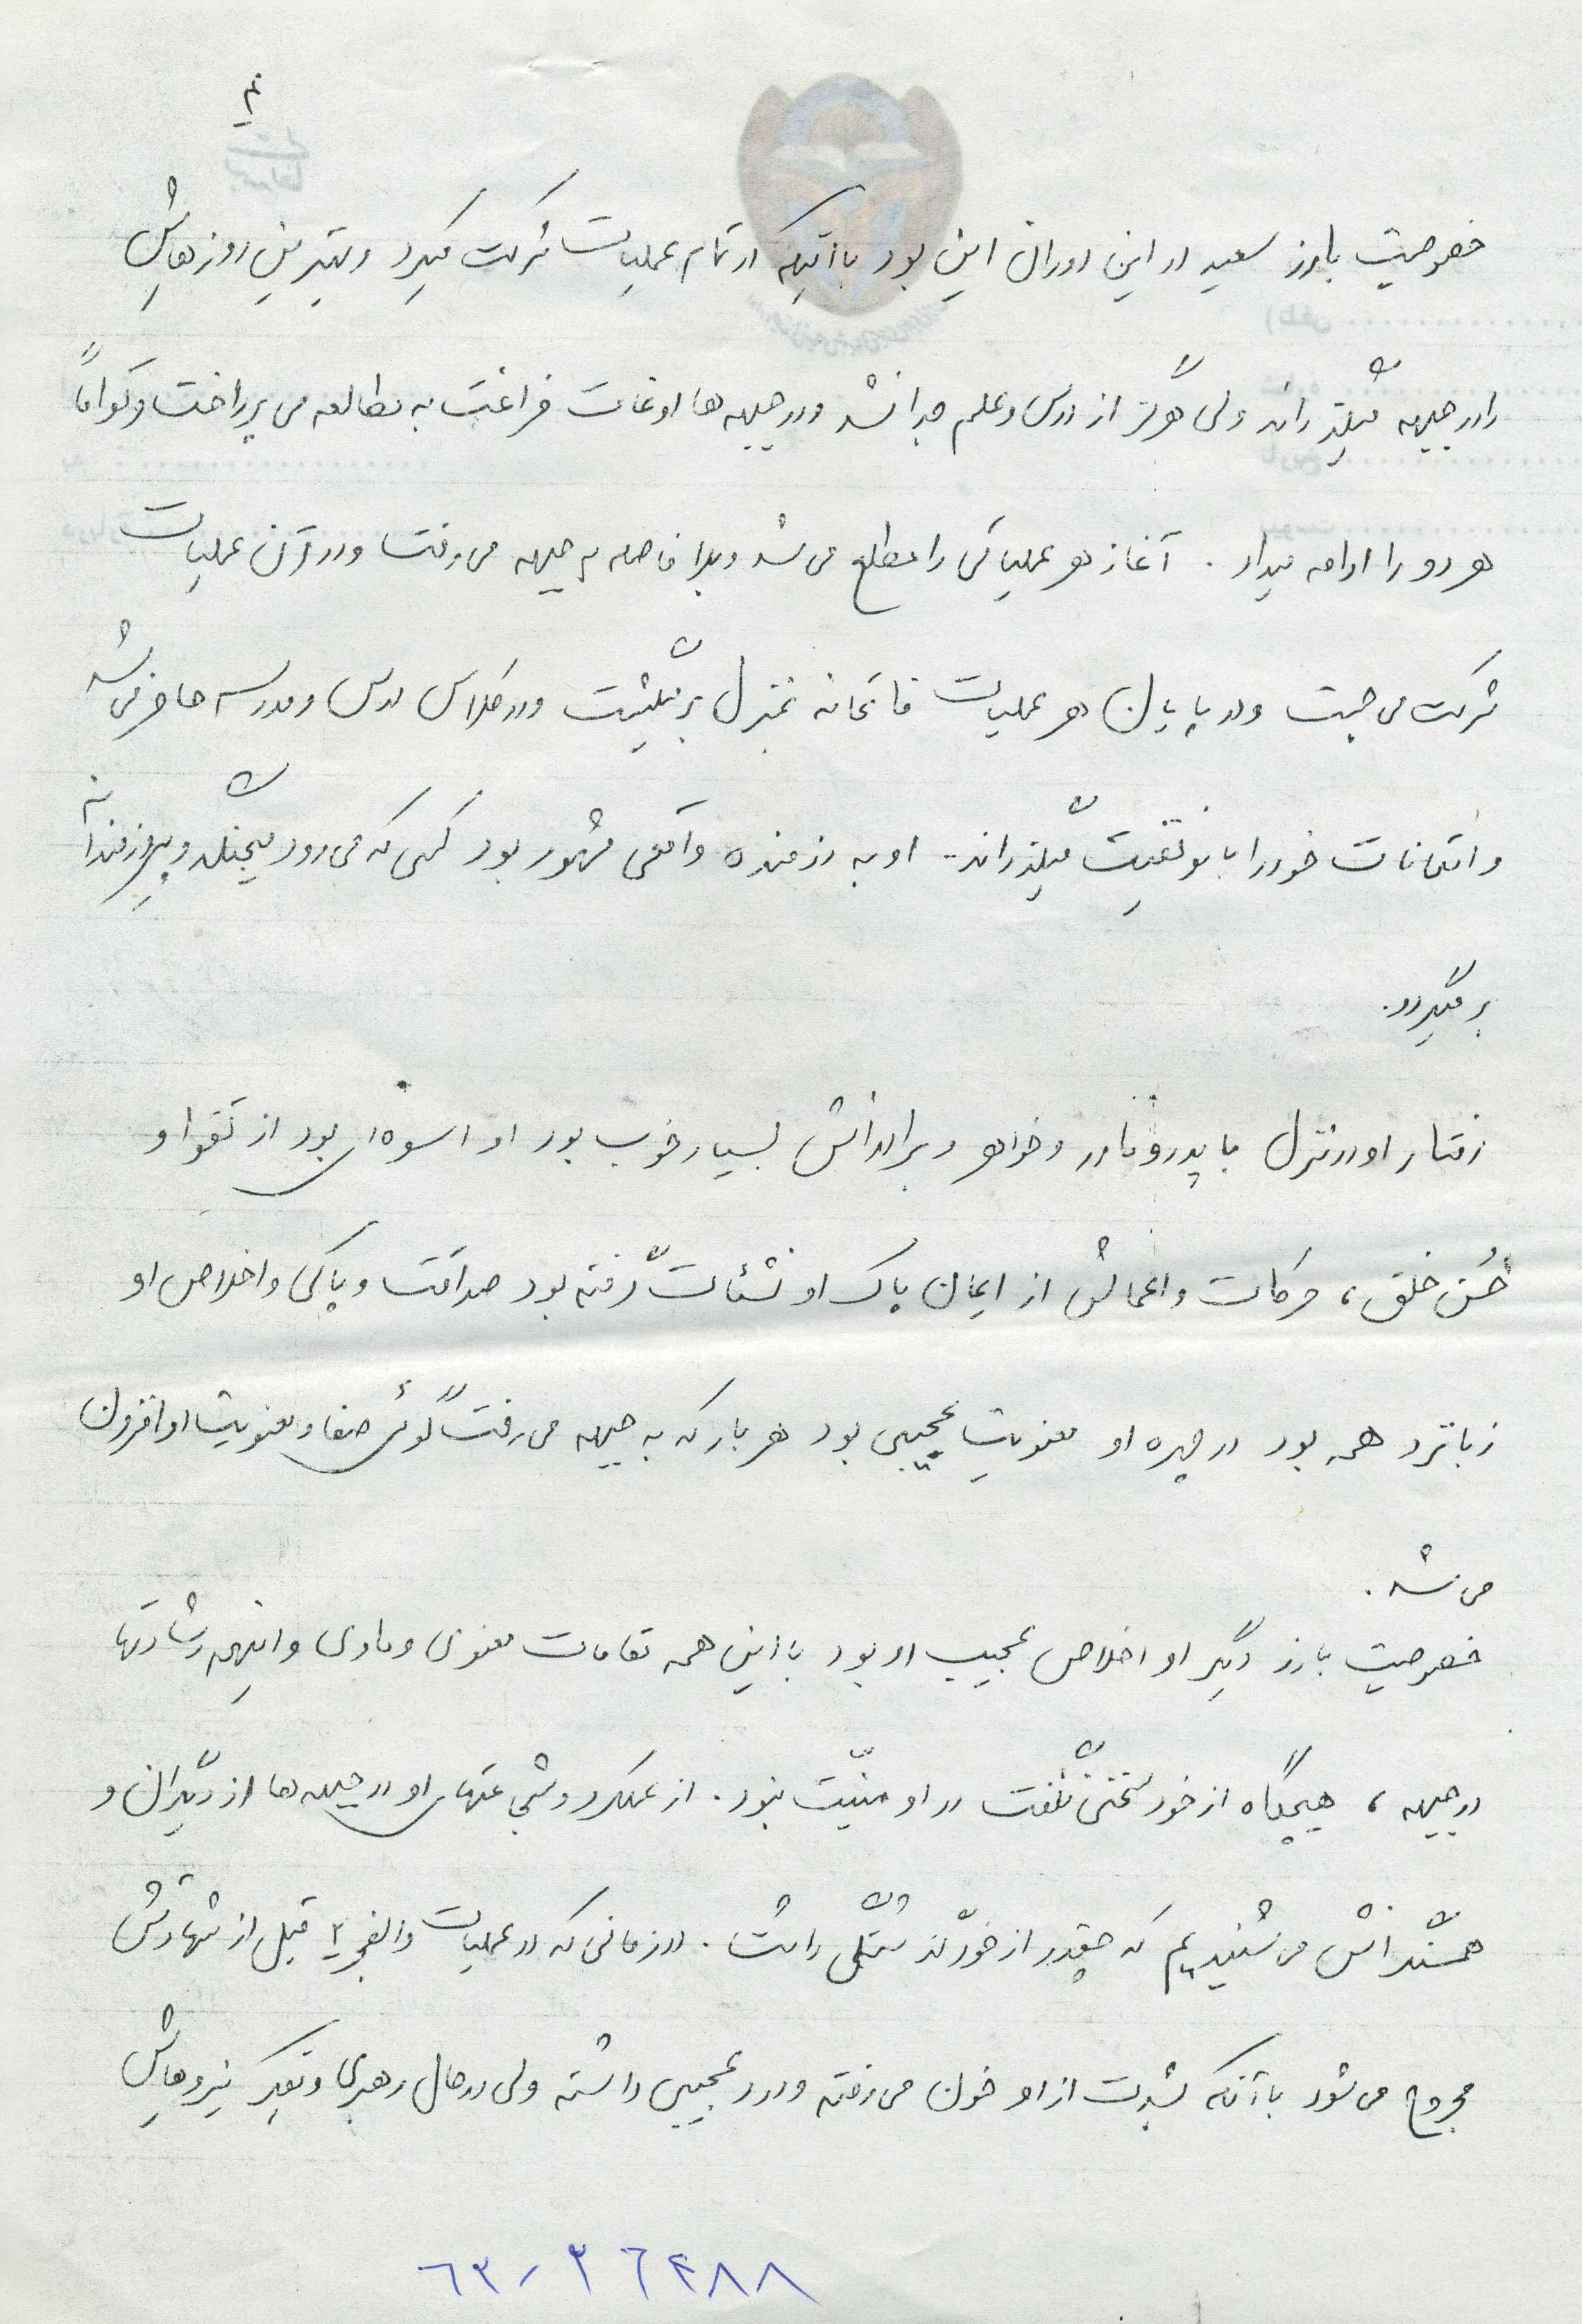 خصوصیت بارز سعید در این دوران این بود با اینکه در تمام عملیات شرکت میکرد و بیشترین روزهایش
را در جبهه میگذراند ولی هرگز از درس و علم جدا نشد و در جبهه ها اوغات فراغت به مطالعه می پرداخت و تواماً
هر دو را ادامه میداد . آغاز هر عملیاتی را مطلع می شد و بلافاصله به جبهه می رفت و در آن عملیات
شرکت می جست و در پایان هر عملیات فاتحانه بمنزل بر میگشت و در کلاس درس و مدرسه حاضر می شد
و امتحانات خود را با موفقیت میگذراند . او به رزمنده واقعی مشهور بود کسی که می رود میجنگد و پیروزمندانه
بر میگردد.
رفتار او در منزل با پدر و مادر و خواهر و برادرانش بسیار خوب بود او اسوه ای بود از تقوا و
حُسن خلق ، حرکات و اعمالش از ایمان پاک او نشئات گرفته بود صداقت و پاکی و اخلاص او
زبانزد همه بود در چهره او معنویت عجیبی بود هر بار که به جبهه می رفت گوئی صفا و معنویت او افزون
می شد .
خصوصیت بارز دیگر او اخلاص عجیب او بود با این همه مقامات معنوی و مادی و اینهمه رشادتها
در جبهه ، هیچگاه از خود سخنی نگفت در او منیّت نبود . از عملکرد و شجاعتهای او در جبهه ها از دیگران و
همسنگرانش می شنیدیم که چقدر از خود گذشتگی داشت . در زمانی که در عملیات والفجر ۲ قبل از شهادتش
مجروح می شود با آنکه بشدت از او خون می رفته و درد عجیبی داشته ولی در حال رهبری و نیروهایش
۶۳-۳۶۴۸۸